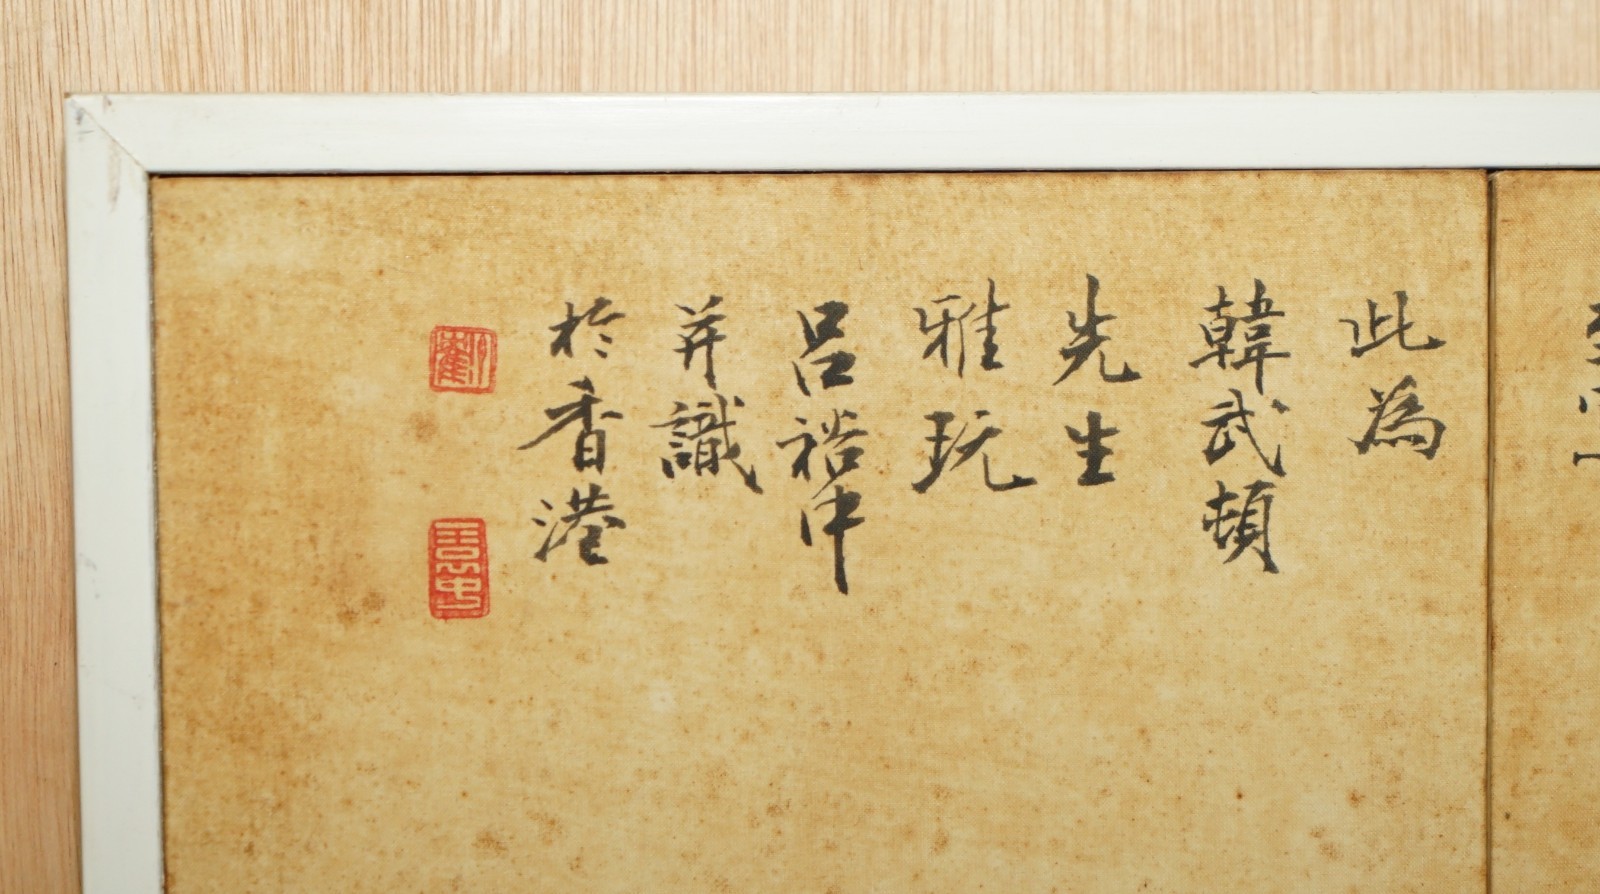 此為
韓武頓
先生
雅玩
呂裕中
并識
於香港